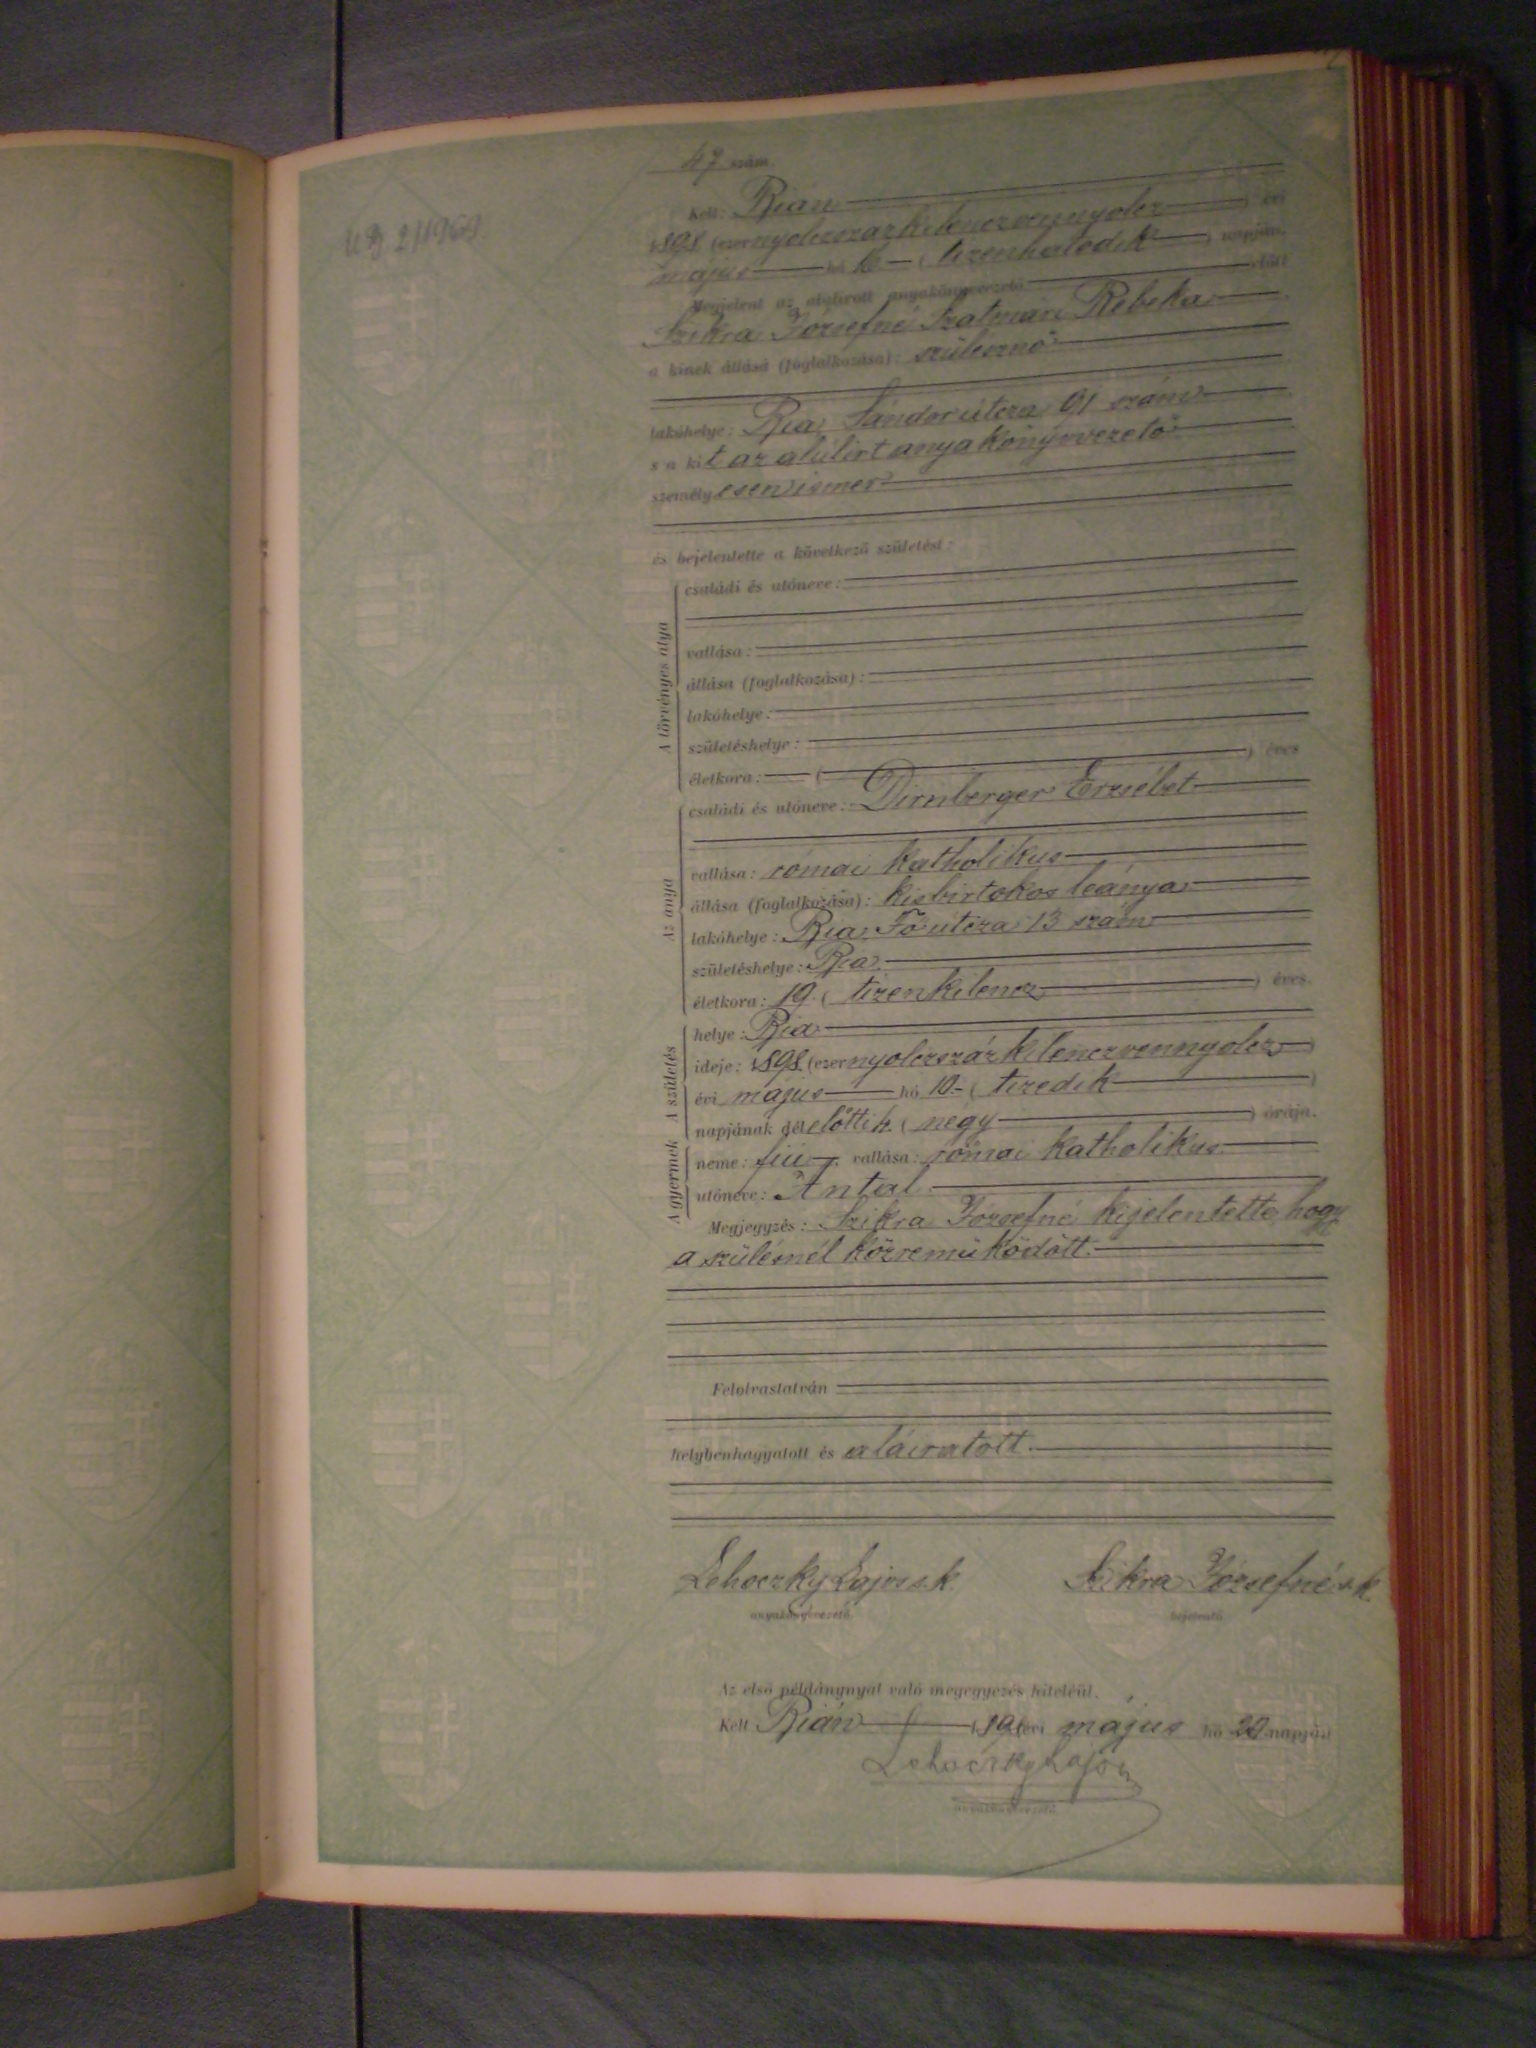 47 szám.
Kelt: Bián
1898 (ezernyolczszázkilenczvennyolcz) évi
május hó 16 (tizenhatodik) napján.
Megjelent az alulirott anyakönyvvezető előtt
Szikra Józsefné Szatmári Rebeka
a kinek állása (foglalkozása): szülésznő
lakóhelye: Bia, Sándor utcza 91 szám
s a kit az alulirt anyakönyvvezető
személyesen ismer
és bejelentette a következő születést:
A törvényes atya
családi és utóneve:
vallása:
állása (foglalkozása):
lakóhelye:
születéshelye:
életkora: ( ) éves
Az anya
családi és utóneve: Dirnberger Erzsébet
vallása: római katholikus
állása (foglalkozása): kisbirtokos leánya
lakóhelye: Bia Fő utcza 13 szám
születéshelye: Bia
életkora: 19 (tizenkilencz) éves.
A születés
helye: Bia
ideje: 1898 (ezernyolczszázkilenczvennyolcz)
évi május hó 10 (tizedik)
napjának délelőtti 4 (négy) órája.
A gyermek
neme: fiú, vallása: római katholikus
utóneve: Antal
Megjegyzés: Szikra Józsefné kijelentette, hogy
a szülésnél közreműködött.
Felolvastatván
helybenhagyatott és aláiratott.
Lehoczky Lajos s.k. Szikra Józsefné s.k.
anyakönyvvezető. bejelentő
Az első példánynyal való megegyezés hiteléül.
Kelt Bián 1898 évi május hó 20 napján
Lehoczky Lajos
anyakönyvvezető